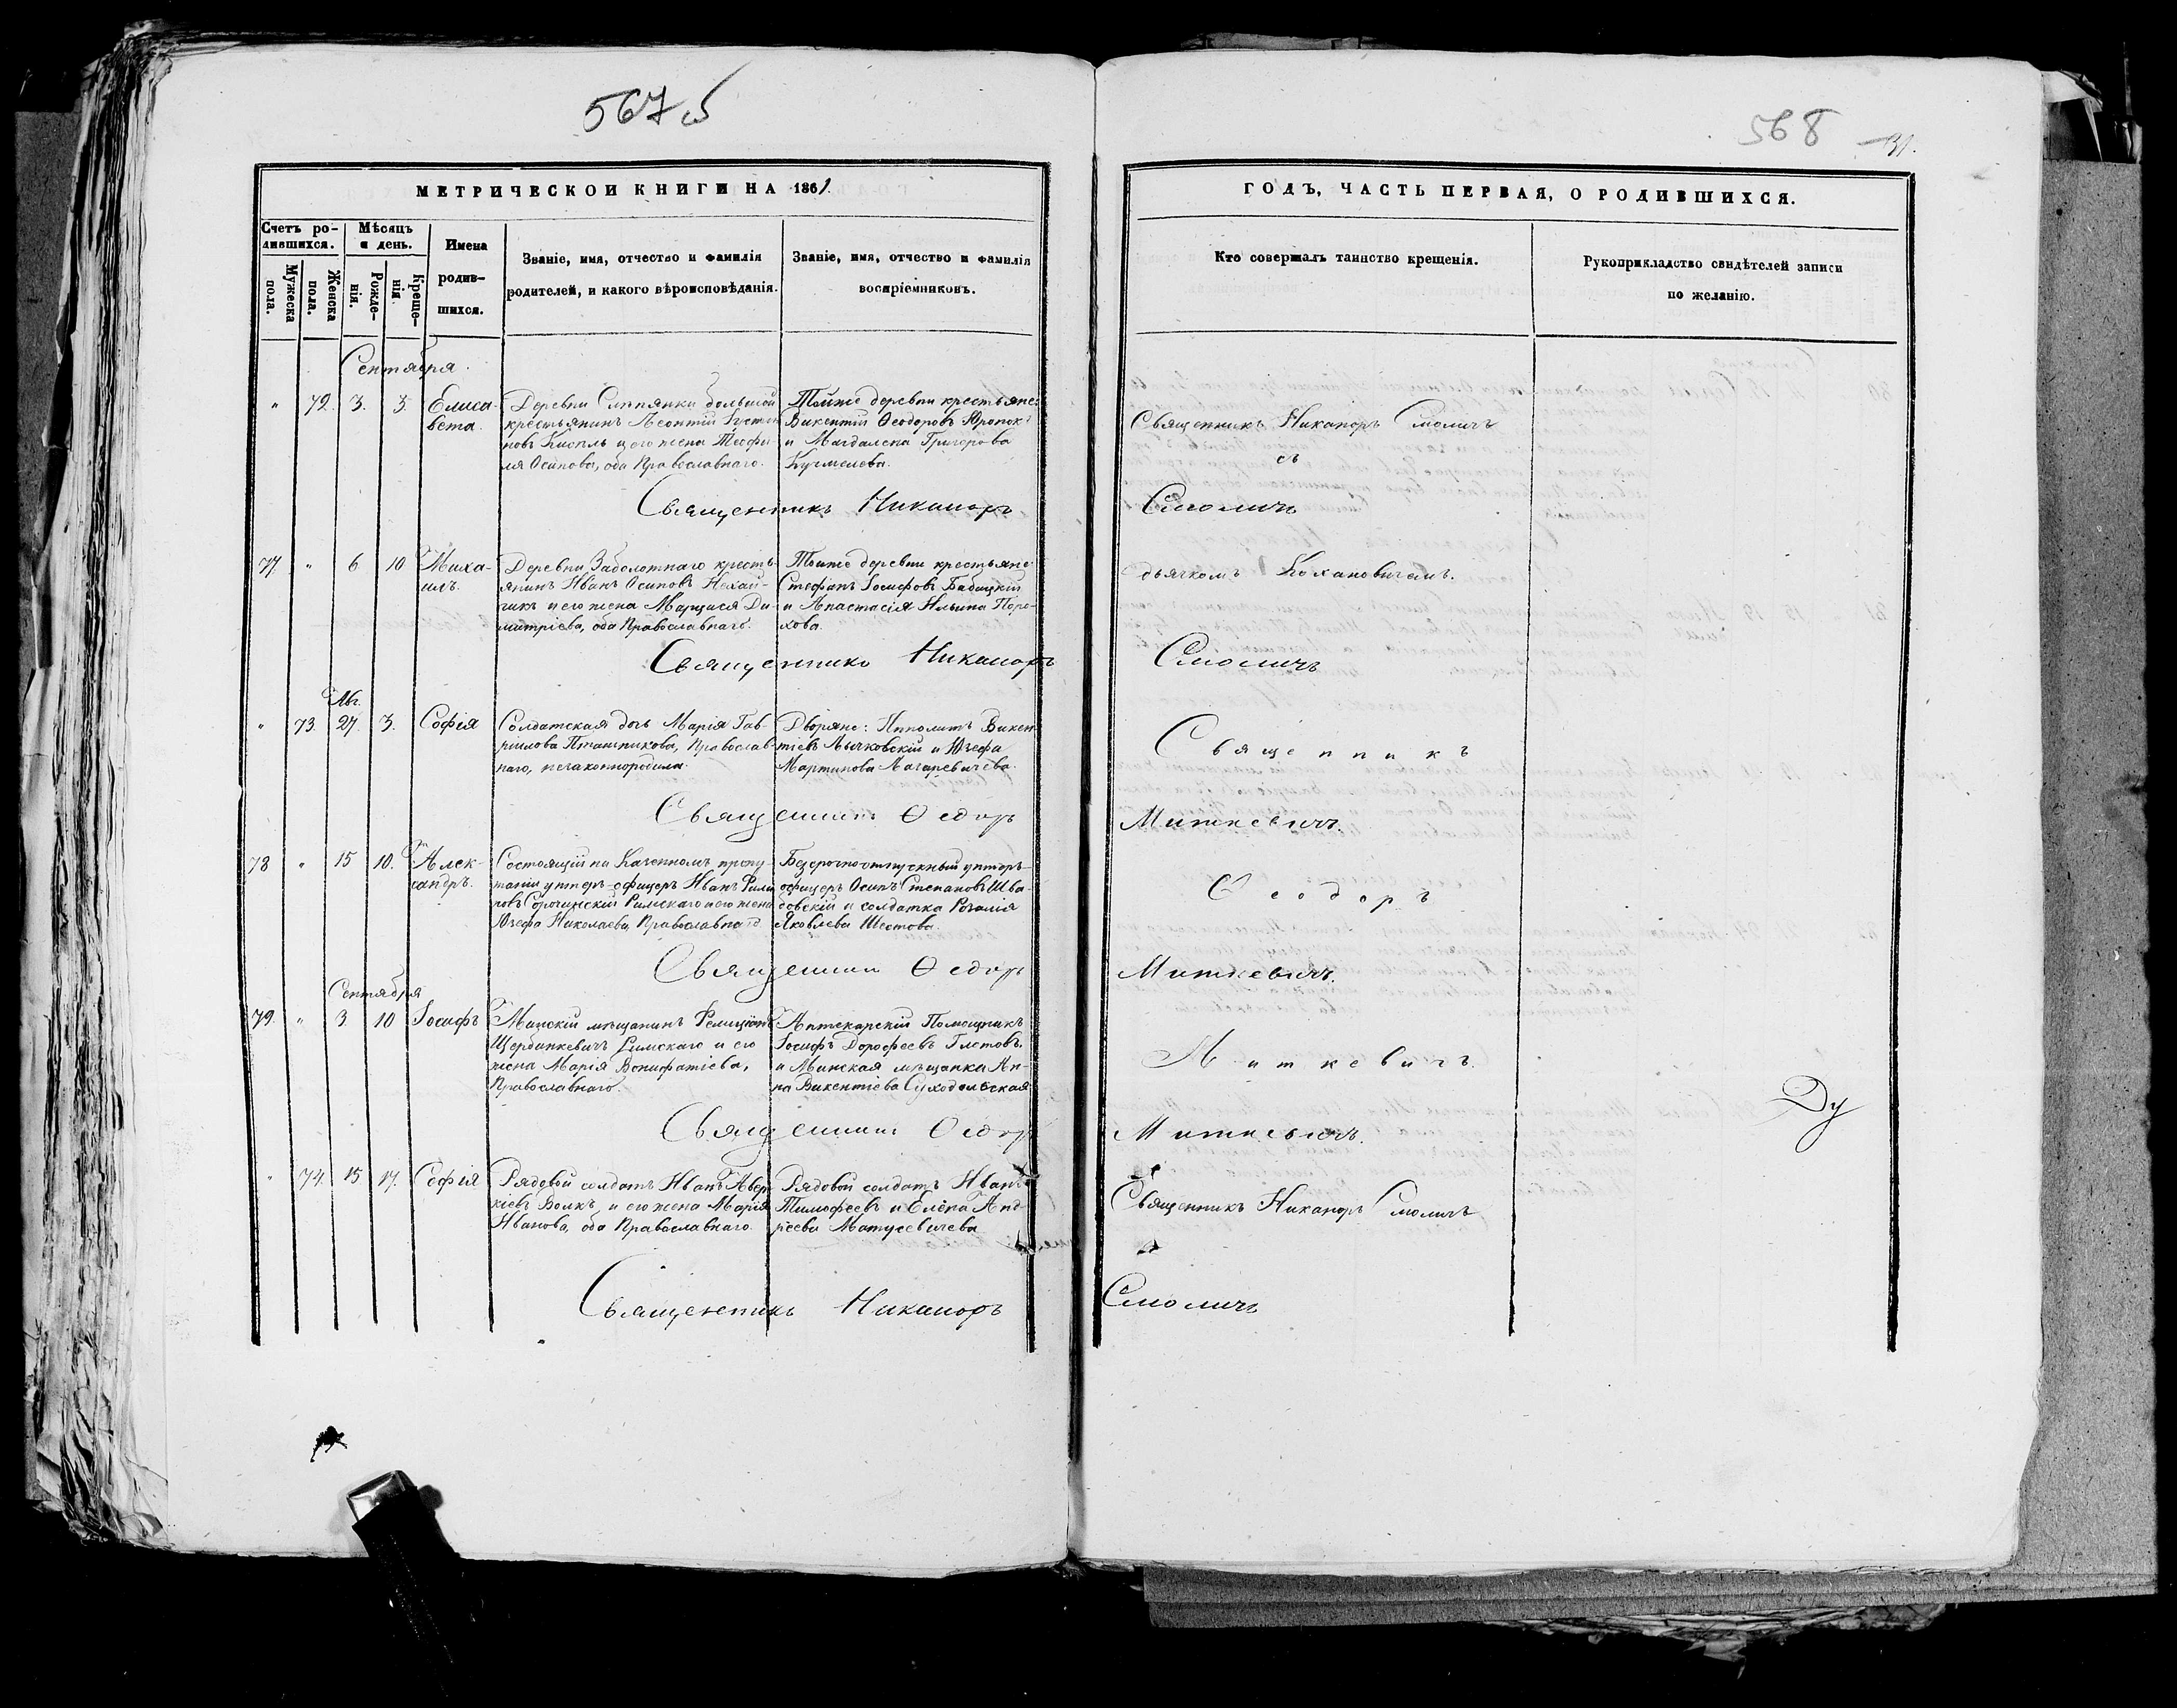 567 б
568
31.
МЕТРИЧЕСКОЙ КНИГИ НА 1861.
ГОДЪ, ЧАСТЬ ПЕРВАЯ, О РОДИВШИХСЯ.
Счетъ ро-
дившихся.
Мѣсяцъ
и день.
Мужеска
пола.
Женска
пола.
Рожде-
нія.
Креще-
нія.
Имена
родив-
шихся.
Званіе, имя, отчество и фамилія
родителей, и какого вѣроисповѣданія.
Званіе, имя, отчество и фамилія
воспріемниковъ.
Кто совершалъ таинство крещенія.
Рукоприкладство свидѣтелей записи
по желанію.
Сентября.
" 72. 3. 3.
Елиса-
вета.
Деревни Слѣпянки большой
крестьянинъ Леонтій
и его жена Теофи-
ля Осипова, оба Православнаго.
Тойже деревни крестьяне:
Викентій Ѳеодоровъ
и Магдалена Григорова
Священникъ Никаноръ Смоличъ
съ
Священникъ Никаноръ Смоличъ
77. " 6 10
Миха-
илъ.
Деревни Заболотнаго кресть-
янинъ Иванъ Осиповъ Нехай-
чикъ и его жена Марцися Ди-
митріева, оба Православнаго.
Тойже деревни крестьяне
Стефанъ Іосифовъ Бабицкій
и Анастасія Ильина Поро-
хова.
дьячкомъ Кохановичемъ.
Священникъ Никаноръ Смоличъ
Авг.
" 73. 27. 3.
Софія
Солдатская дочь Марія Гав-
рилова Пташникова, Православ-
наго, незаконнородила.
Дворяне: Ипполитъ Викен-
тіевъ Лычковскій и Юзефа
Мартинова Лагаревичева.
Священникъ
Священникъ Ѳедоръ Миткевичъ.
78 " 15 10.
Алек-
сандръ.
Состоящій на Казенномъ пропи-
таніи унтеръ-офицеръ Иванъ
Сорочинскій Римскаго и его жена
Юзефа Николаева, Православнаго
Безсрочноотпускный унтеръ-
офицеръ Осипъ Степановъ Шва-
совскій и солдатка Розалія
Яковлева Шестова.
Ѳеодоръ
Священникъ Ѳедоръ Миткевичъ.
Сентября
79. " 3. 10
Іосифъ
Минскій мѣщанинъ Фелиціанъ
Щербинкевичъ Римскаго и его
жена Марія Вонифатіева,
Православнаго.
Аптекарскій Помощникъ
Іосифъ Дорофеевъ Глѣтовъ.
и Минская мѣщанка Ан-
на Викентіева Суходольская
Миткевичъ.
Священникъ Ѳедоръ Миткевичъ.
Ду
" 74. 15 17.
Софія
Рядовой солдатъ Иванъ Авер-
кіевъ Волкъ, и его жена Марія
Иванова, оба Православнаго.
Рядовой солдатъ Иванъ
Тимофеевъ и Елена Анд-
реева Матусевичева
Священникъ Никаноръ Смоличъ
Священникъ Никаноръ Смоличъ